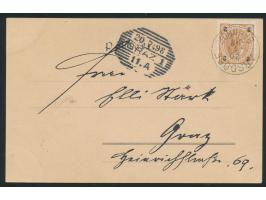 20.5.98
GRAZ 1
11.A
Frau
Elli Stärk
Graz
Heinrichstraße 69.